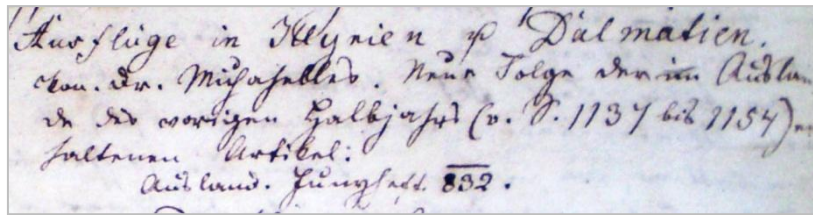 Ausflüge in Illyrien u Dalmatien.
von Dr. Michahelles. Neue Folge der im Auslan
de des vorigen Halbjahrs (v. S. 1137 bis 1154) en
haltenen Artikel:
Ausland. Junyheft 832.